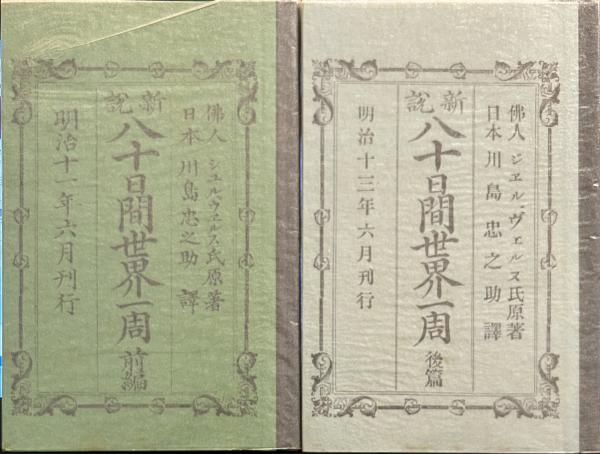 佛人 ジエル、ヴエルス氏原著
日本 川島忠之助 譯
新説
八十日間世界一周 前編
明治十一年六月刊行
佛人 ジエル、ヴエルヌ氏原著
日本 川島忠之助 譯
新説
八十日間世界一周 後篇
明治十三年六月刊行